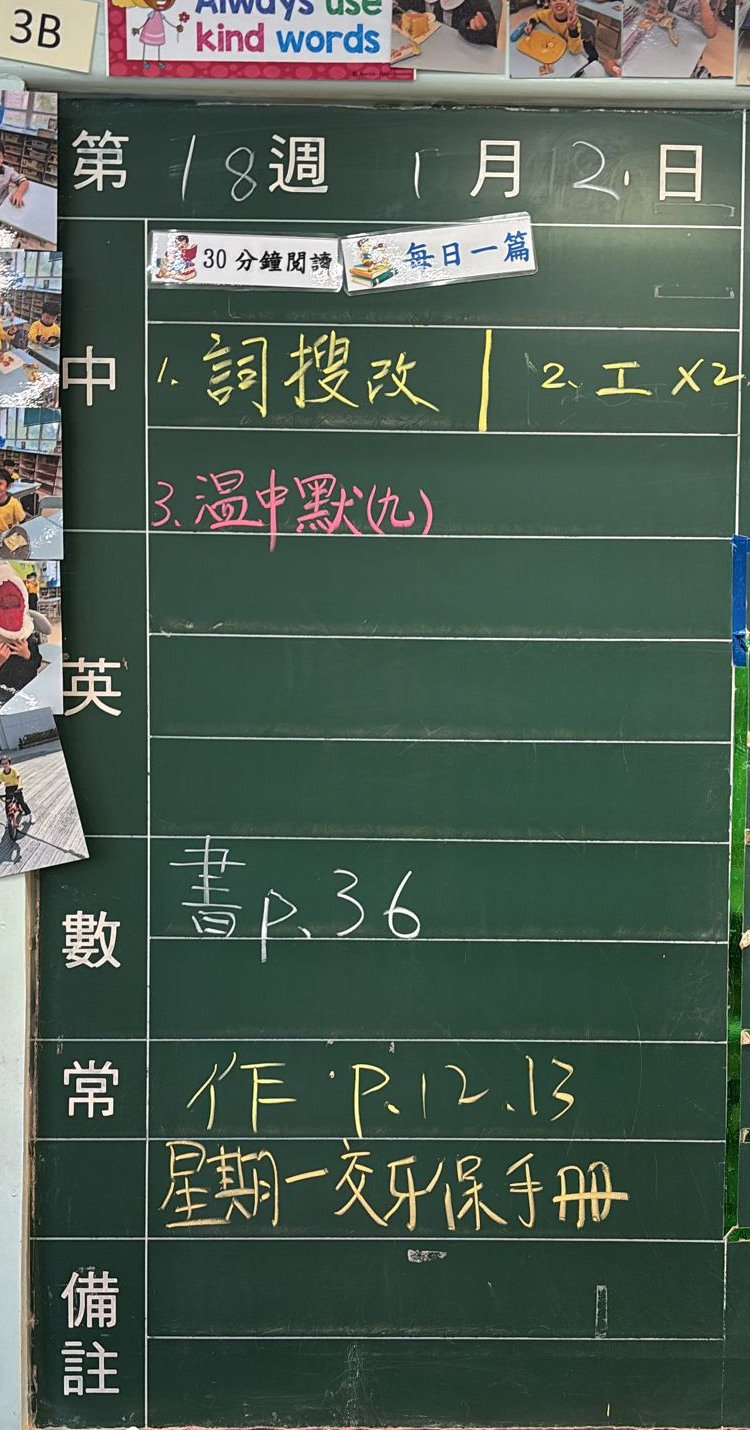 3B
Always use
kind words
第 18 週 1 月 2 日
30 分鐘閱讀 每日一篇
中 1. 詞搜改 | 2. 工 X2
3. 溫中默(九)
英
數 書 p. 36
常 作 P. 12, 13
星期一交牙保手冊
備註